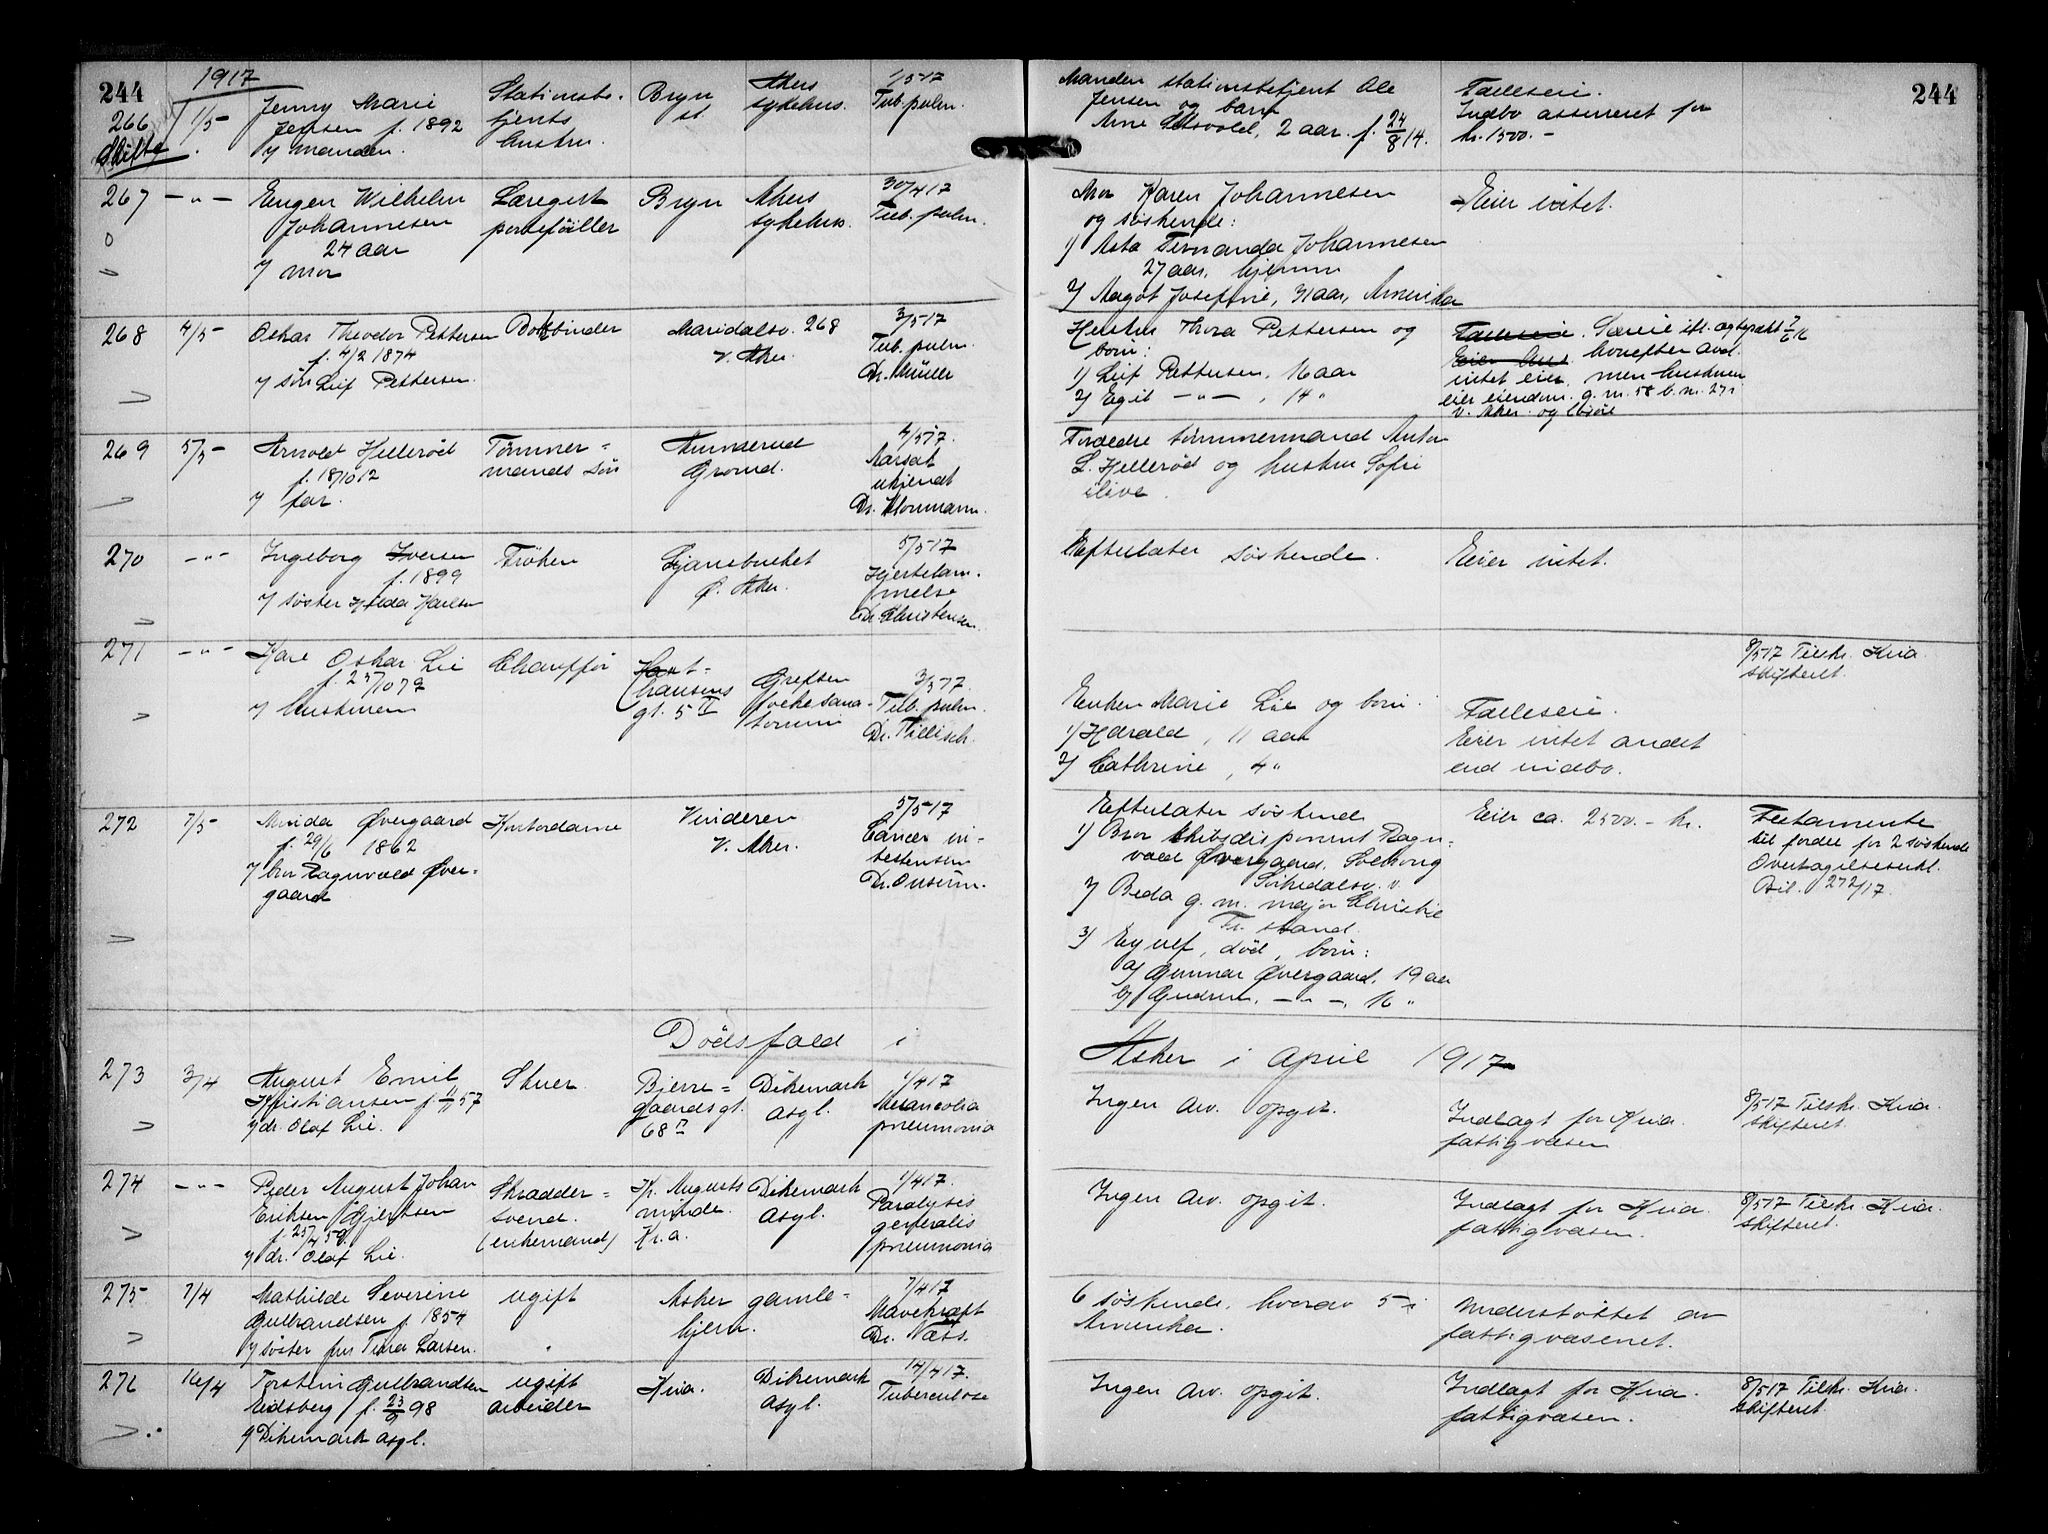 244
1917
266 1/5 Jenny Marie Jensen f. 1892
v/ manden.
Skifte
Stationsbe-
tjents
hustru
Bryn
st.
Akers
sykehus.
1/5 17
Tub. pulm.
Manden stationsbetjent Ole
Jensen og barn
Arne 2 aar. f. 24/8 14.
Fælleseie.
Indbo assureret for
kr. 1500.-
244
267 -"- Eugen Wilhelm
Johannesen
24 aar
v/ mor
0
Læregut
porteføiller
Bryn
Akers
sykehus.
30/4 17
Tub. pulm.
Mor Karen Johannesen
og søskende:
1) Asta Fernanda Johannesen
27 aar, hjemme
2) Aagot Josefine, 31 aar, Amerika
Eier intet.
268 4/5 Oskar Theodor Pettersen
f. 4/2 1874
v/ søn Leif Pettersen.
Bokbinder
Maridalsv. 268
V. Aker.
3/5 17
Tub. pulm.
Dr. Müller
Hustru Thora Pettersen og
børn:
1) Leif Pettersen, 16 aar
2) Egil -"-, 14 "
Fælleseie. Særeie ifl. ægtepakt 7/6 16
Eier hvorefter avd.
intet eier, men hustruen
eier eiendom g.m. 58 b.m. 271
V. Aker og
269 5/5 Arnold Hellerød
f. 18/10 12
v/ far.
Tømmer-
mands søn
Amerud
Grorud.
4/5 17.
Aarsak
ukjendt
Dr.
Forældre tømmermand Anton
L. Hellerød og hustru Sofie
ilive.
270 -"- Ingeborg Iversen
f. 1899
v/ søster Hilda Karlsen
Frøken
Ljansbruket
Ø. Aker.
5/5 17
Hjertelam-
melse
Dr. Christensen
Efterlater søskende.
Eier intet.
271 -"- Karl Oskar Lie
f. 25/10 79
v/ hustruen
Chauffør
Hxt-
hausens
gt. 5 IV
Grefsen
folkesana-
torium
3/5 17.
Tub. pulm.
Dr. Tillisch.
Enken Marie Lie og børn:
1) Harald, 11 aar
2) Cathrine, 4 "
Fælleseie.
Eier intet andet
end indbo.
8/5 17 Tilskr. Kria.
skifteret.
272 7/5 Minda Øvergaard
f. 29/6 1862
v/ bror Ragnvald Øver-
gaard
Kontordame
Vinderen
V. Aker.
5/5 17
Cancer in-
testensum
Dr. Onsum.
Efterlater søskende
1) Bror skibsdisponent Ragn-
vald Øvergaard, Solhaug
Sørkedalsv.
2) Beda g. m. major Christie
Tr. stand.
3) Eyulf, død, børn:
a) Gunnar Øvergaard, 19 aar
b) Gudrun, -"-, 16 "
Eier ca. 2500.- kr.
Testamente
til fordel for 2 søskende
Overtagelseserkl.
Bil. 272/17.
Dødsfald i Asker i april 1917
273 3/4 August Emil
Kristiansen f. 11/11 57
v/ dr. Olaf Lie.
Skuer
Bjerre-
gaardsgt.
68 IV
Dikemark
asyl.
1/4 17
Melancolia
pneumonia
Ingen arv. opgit.
Indlagt for Kria.
fattigvæsen
8/5 17 Tilskr. Kria.
skifteret.
274 -"- Peder August Johan
Eriksen Gjertsen
f. 25/4 59.
v/ dr. Olaf Lie.
Skrædder-
svend.
(enkemand)
Kr. Augusts
minde.
Kr.a.
Dikemark
asyl.
1/4 17.
Paralysis
generalis
pneumonia
Ingen arv. opgit.
Indlagt for Kria.
fattigvæsen.
8/5 17 Tilskr. Kria.
skifteret.
275 7/4 Mathilde Severine
Gulbrandsen f. 1854
v/ søster fru Larsen.
ugift
Asker gamle-
hjem.
7/4 17
Mavekræft
Dr. Næss.
6 søskende, hvorav 5 i
Amerika.
Understøttet av
fattigvæsenet.
276 16/4 Torstein Gulbrandsen
Eidsberg f. 23/9 98
v/ Dikemark asyl.
ugift
arbeider
Kria.
Dikemark
asyl.
14/4 17.
Tuberculose
Ingen arv. opgit.
Indlagt for Kria.
fattigvæsen.
8/5 17 Tilskr. Kria.
skifteret.